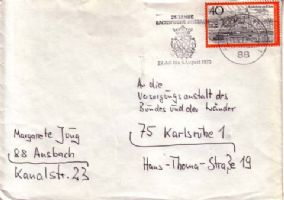 25 JAHRE
BACHWOCHE ANSBACH
88
40
An die
Versorgungsanstalt des
Bundes und der Länder
75 Karlsruhe 1
Hans-Thoma-Straße 19
Margarete Jung
88 Ansbach
Kanalstr. 23